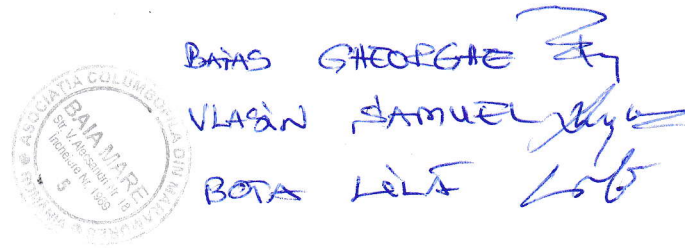 BAIAS GHEORGHE
VLASIN SAMUEL
BOTA LILA
ASOCIATIA COLUMBOFILA DIN MARAMURES
ROMANIA
BAIA MARE
Str. V. Alecsandri nr. 18